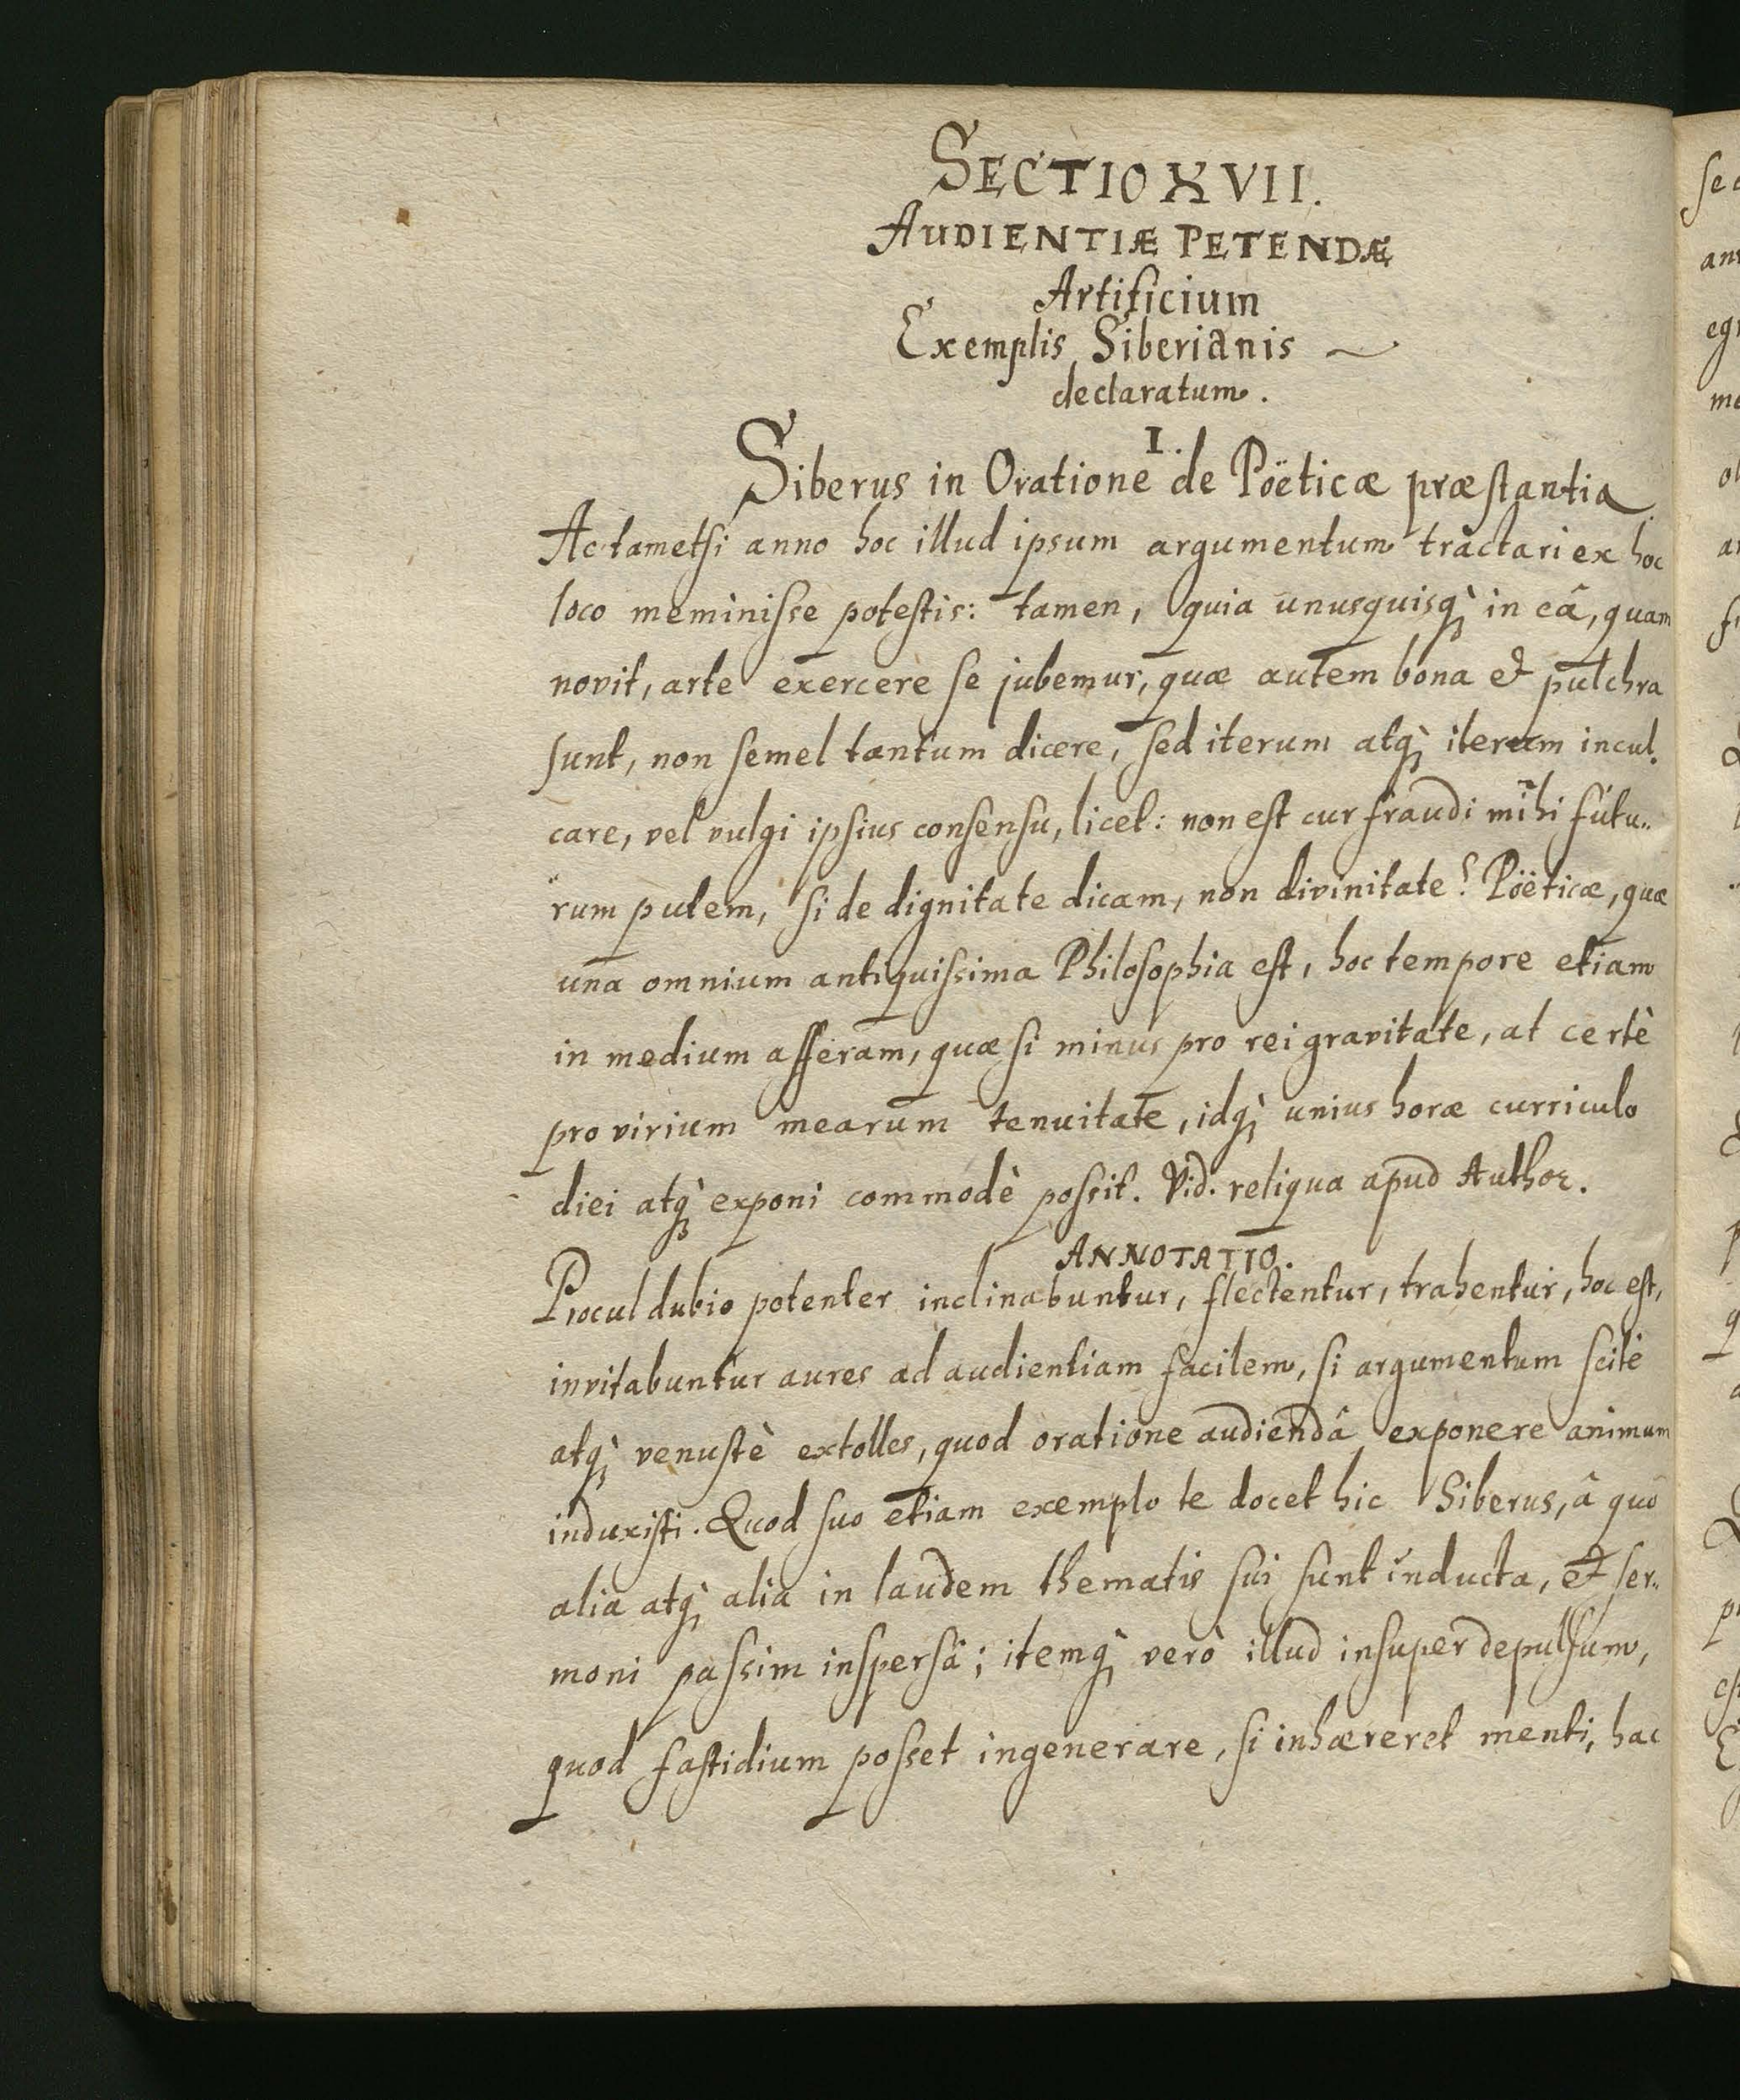 SECTIO XVII.
AUDIENTIÆ PETENDÆ
Artificium
Exemplis Siberianis
declaratum.
I.
Siberus in Oratione de Pöeticæ præstantia
Ac tametsi anno hoc illud ipsum argumentum tractari ex hoc
loco meminisse potestis: tamen, quia unusquisq; in eâ, quam
novit, arte exercere se jubemur, quæ autem bona et pulchra
sunt, non semel tantum dicere, sed iterum atq; iterum incul.
care, vel vulgi ipsius consensu, licet: non est cur fraudi mihi futu..
rum putem, si de dignitate dicam, non divinitate? Pöeticæ, quæ
una omnium antiquissima Philosophia est, hoc tempore etiam
in medium afferam, quæ si minus pro rei gravitate, at certè
pro virium mearum tenuitate, idq; unius horæ curriculo
diei atq; exponi commodè possit. Vid. reliqua apud Author.
ANNOTATIO.
Procul dubio potenter inclinabuntur, flectentur, trahentur, hoc est,
invitabuntur aures ad audientiam facilem, si argumentum scitè
atq; venustè extolles, quod oratione audiendâ exponere animum
induxisti. Quod suo etiam exemplo te docet hic Siberus, â quo
alia atq; alia in laudem thematis sui sunt inducta, et ser..
moni passim inspersa; itemq; verò illud insuper depulsum,
quod fastidium posset ingenerare, si inhæreret menti, hac